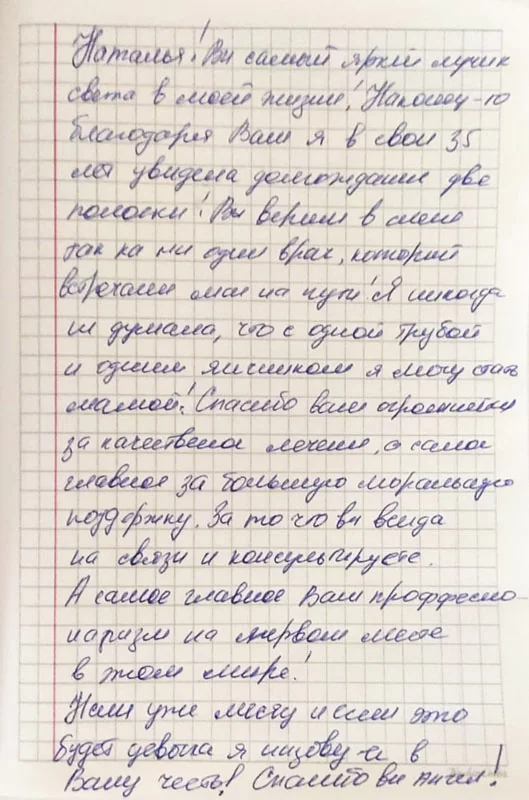 Наталья! Вы самый яркий лучик
света в моей жизни! Наконец-то
благодаря Вам я в свои 35
лет увидела долгожданные две
полоски! Вы верили в меня
так как ни один врач, который
встречались мне на пути! Я никогда
не думала, что с одной трубой
и одним яичником я могу стать
мамой! Спасибо вам огромнейшее
за качественное лечение, а самое
главное за большую моральную
поддержку. За то что вы всегда
на связи и консультируете.
А самое главное Ваш проффесио
нализм на первом месте
в этом мире!
Нам уже месяц и если это
будет девочка я назову её в
Вашу честь! Спасибо вы Ангел!